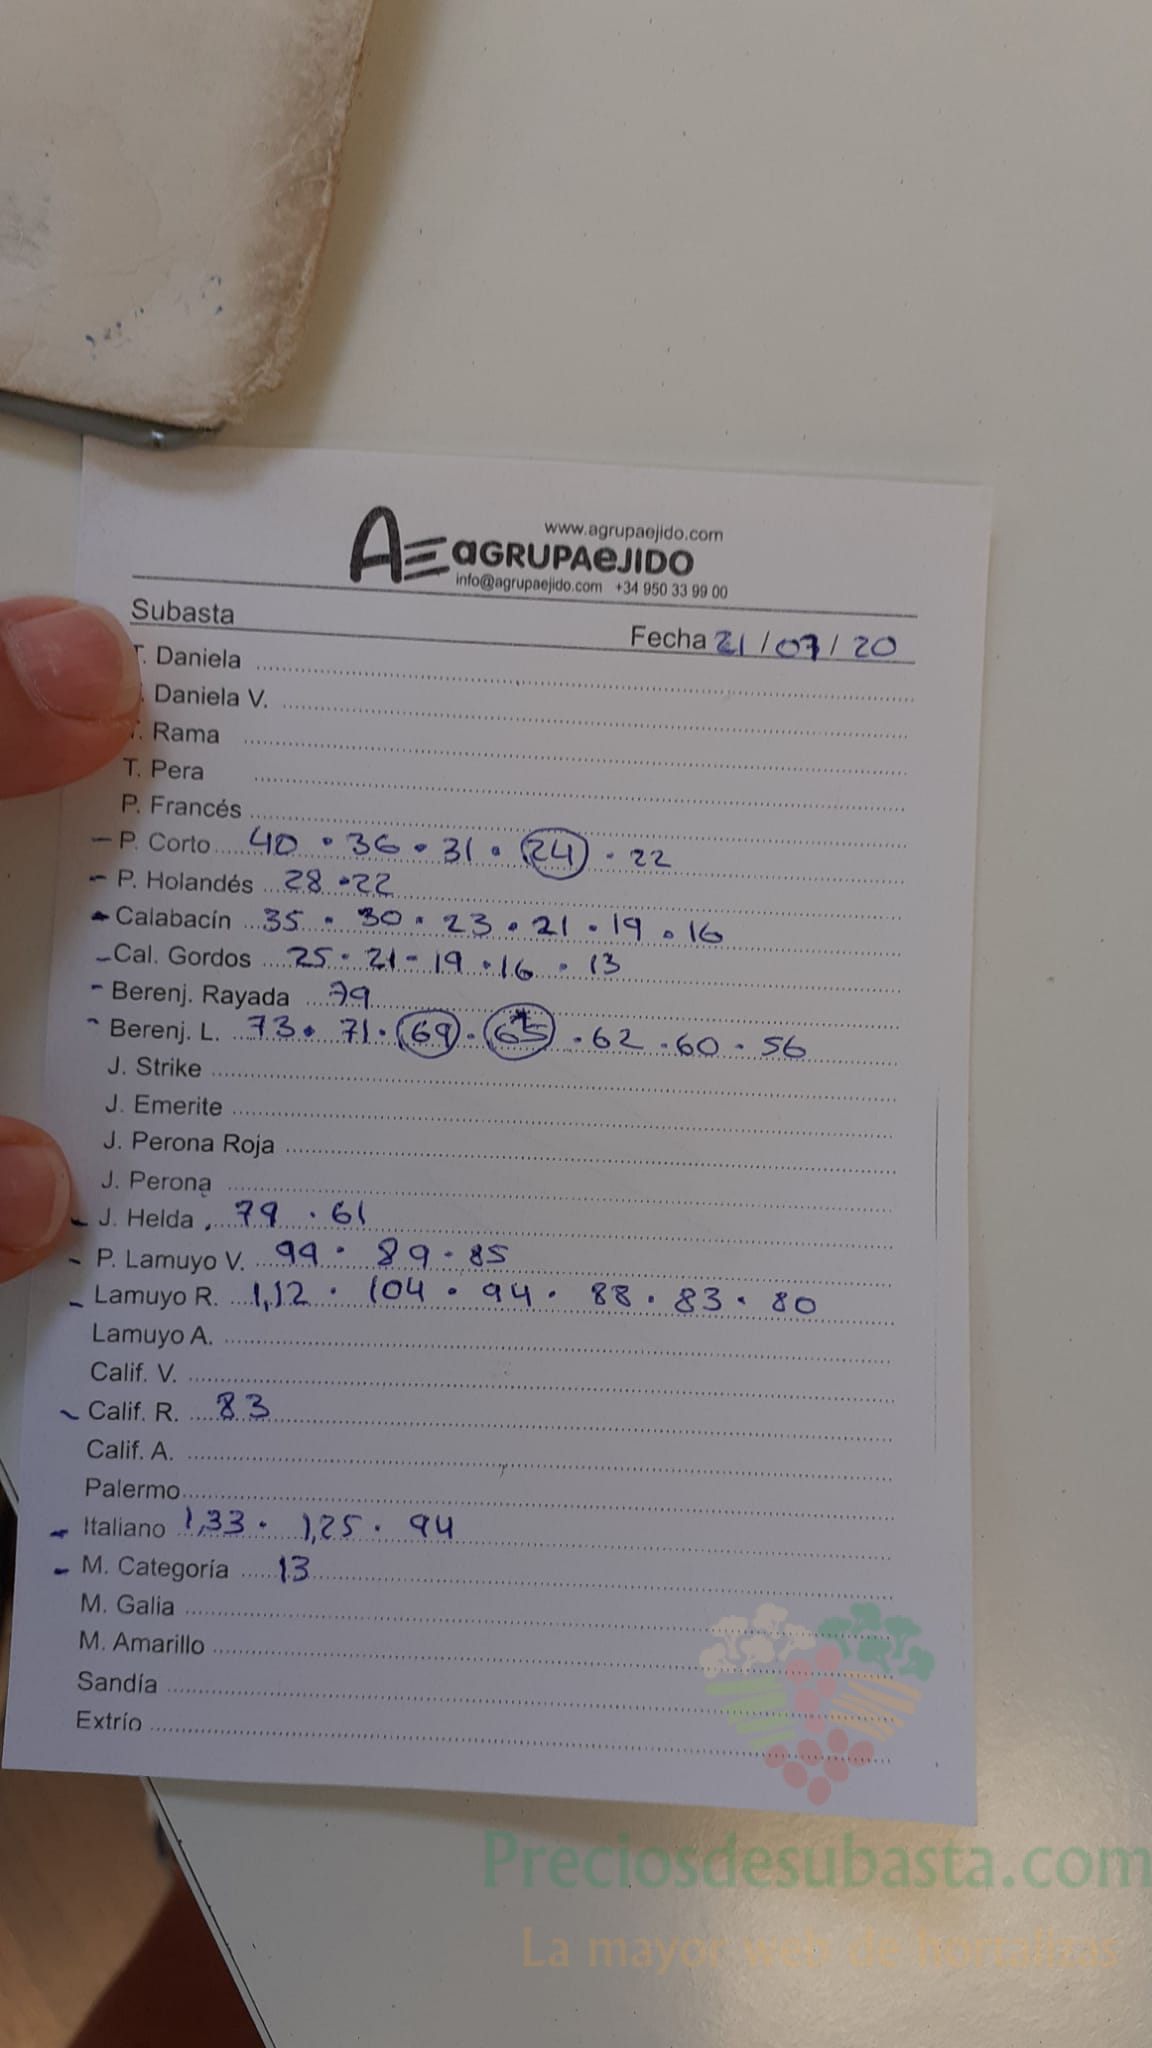 www.agrupaejido.com
AE aGRUPAeJIDO
info@agrupaejido.com +34 950 33 99 00
Subasta
Fecha 21/07/20
T. Daniela
. Daniela V.
T. Rama
T. Pera
P. Francés
- P. Corto 40 · 36 · 31 · 24 · 22
- P. Holandés 28 · 22
- Calabacín 35 · 30 · 23 · 21 · 19 · 16
- Cal. Gordos 25 · 21 - 19 · 16 · 13
- Berenj. Rayada 79
- Berenj. L. 73 · 71 · 69 · 65 · 62 · 60 · 56
J. Strike
J. Emerite
J. Perona Roja
J. Perona
- J. Helda 79 · 61
- P. Lamuyo V. 99 · 89 · 85
- Lamuyo R. 1,12 · 104 · 94 · 88 · 83 · 80
Lamuyo A.
Calif. V.
- Calif. R. 83
Calif. A.
Palermo
- Italiano 1,33 · 1,25 · 94
- M. Categoría 13
M. Galia
M. Amarillo
Sandía
Extrío
Preciosdesubasta.com
La mayor web de hortalizas